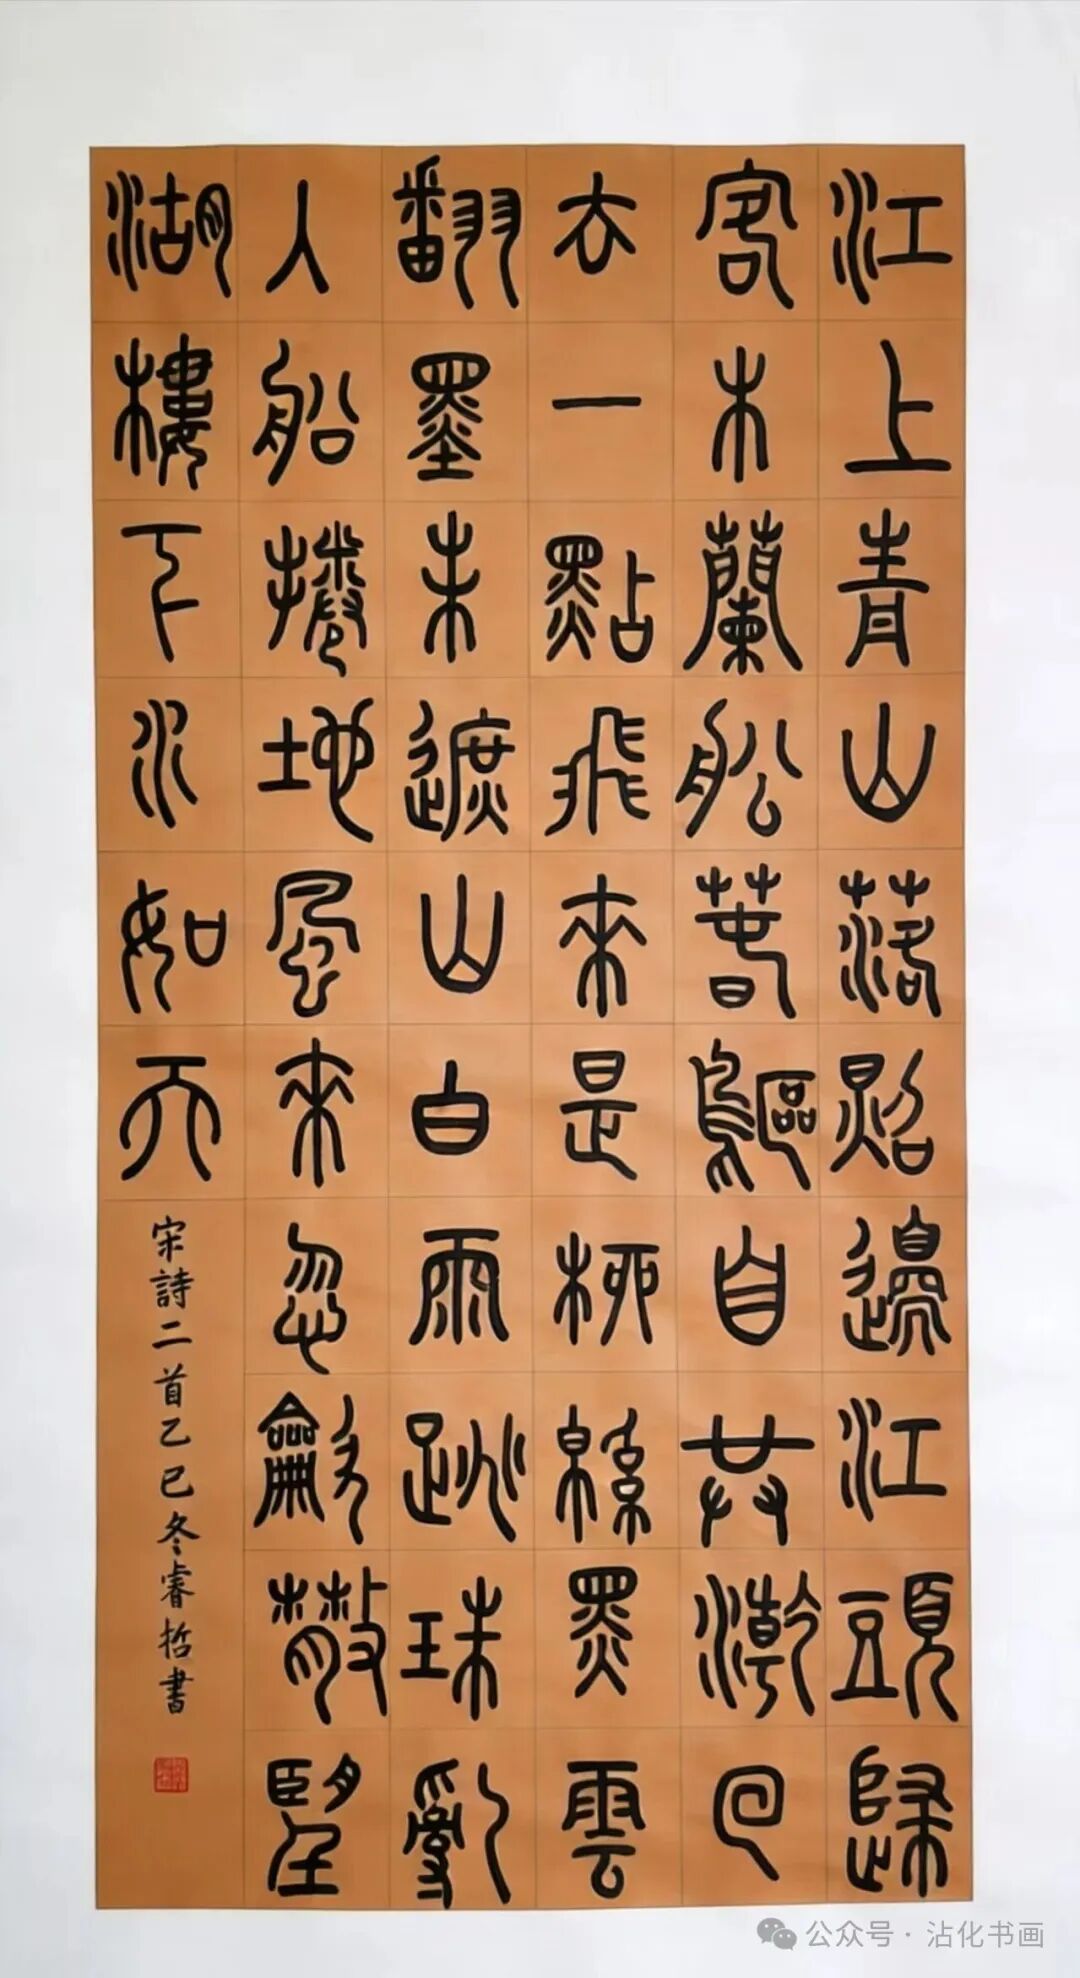 江上青山落照邊江頭歸
客木蘭舩春鷗自共潮回
去一點飛來是柳綿黑雲
翻墨未遮山白雨跳珠亂
入船捲地風來忽龡散望
湖樓下水如天
宋詩二首乙巳冬睿哲書
公众号·沾化书画